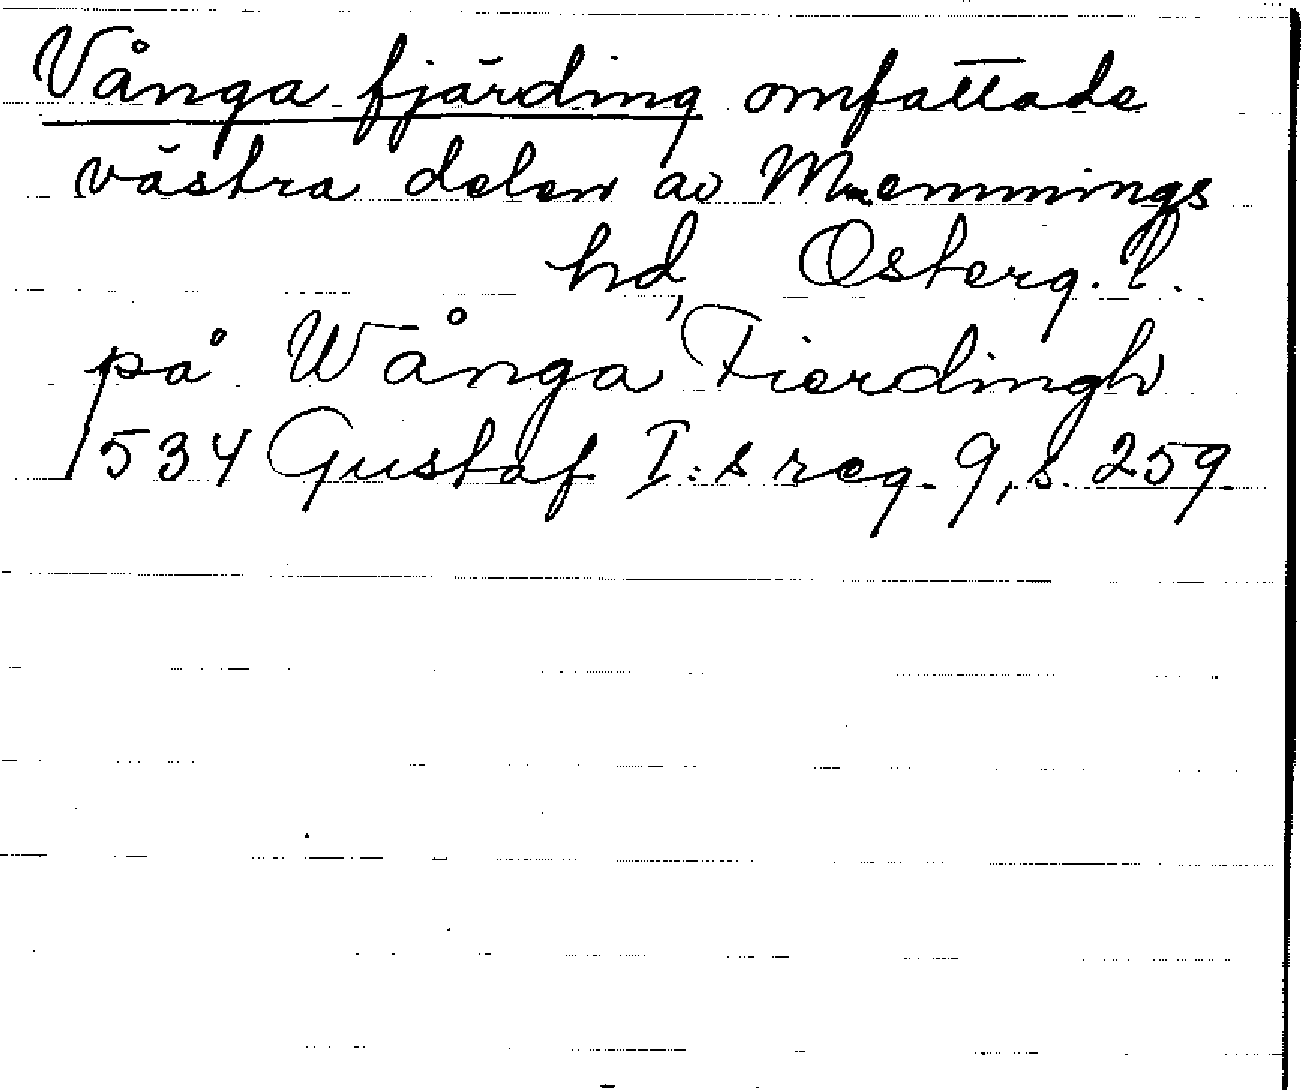 Vånga fjärding omfattade
västra delen av Memmings
hd, Österg. l.
på Wånga Fierdingh
1534 Gustaf I:s reg. 9, s. 259